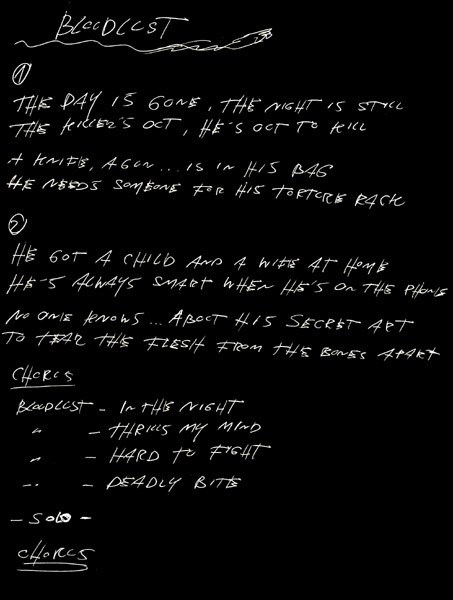 BLOODLUST
1
THE DAY IS GONE, THE NIGHT IS STILL
THE KILLER'S OUT, HE'S OUT TO KILL
A KNIFE, A GUN... IS IN HIS BAG
HE NEEDS SOMEONE FOR HIS TORTURE RACK
2
HE GOT A CHILD AND A WIFE AT HOME
HE'S ALWAYS SMART WHEN HE'S ON THE PHONE
NO ONE KNOWS... ABOUT HIS SECRET ART
TO TEAR THE FLESH FROM THE BONES APART
CHORUS
BLOODLUST - IN THE NIGHT
" - THRILLS MY MIND
" - HARD TO FIGHT
" - DEADLY BITE
- SOLO -
CHORUS